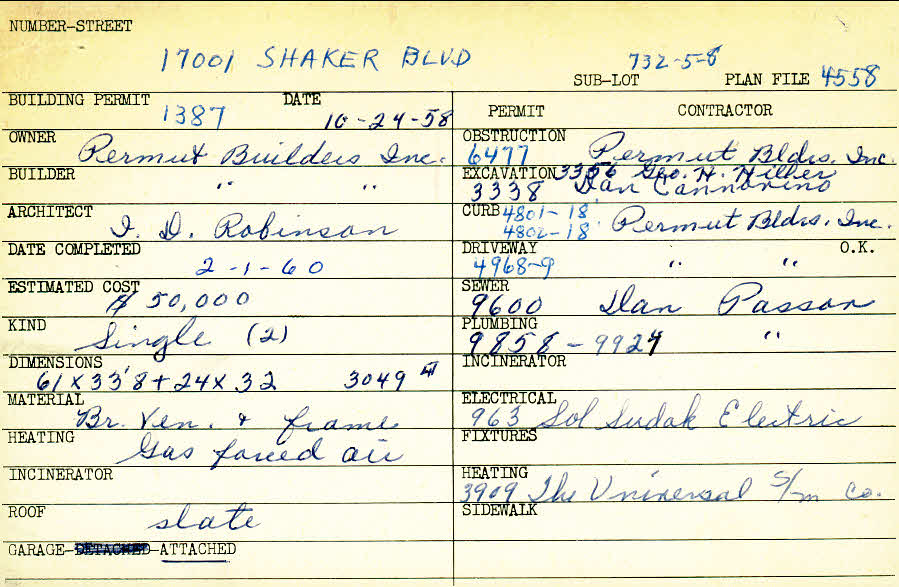 NUMBER-STREET
17001 SHAKER BLVD
732-5-8
SUB-LOT PLAN FILE 4558
BUILDING PERMIT DATE
1387 10-24-58
OWNER
Permut Builders Inc.
BUILDER
" "
ARCHITECT
I. D. Robinson
DATE COMPLETED
2-1-60
ESTIMATED COST
$ 50,000
KIND
Single (2)
DIMENSIONS
61 x 33'8 + 24 x 32 3049
MATERIAL
Br. Ven. & frame
HEATING
Gas forced air
INCINERATOR
ROOF
slate
GARAGE-DETACHED-ATTACHED
PERMIT CONTRACTOR
OBSTRUCTION
6477 Permut Bldrs. Inc.
EXCAVATION 3356 Geo. H. Hiller
3338 Dan Cannarino
CURB 4801-18
4802-18 Permut Bldrs. Inc.
DRIVEWAY O.K.
4968-9 " "
SEWER
9600 Dan Passon
PLUMBING
9858-9924 "
INCINERATOR
ELECTRICAL
963 Sol Sudak Electric
FIXTURES
HEATING
3909 The Universal S/m Co.
SIDEWALK